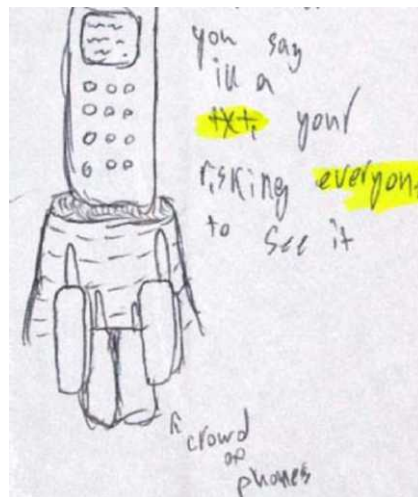 you say
in a
txt, your
risking everyone
to see it
crowd
of
phones